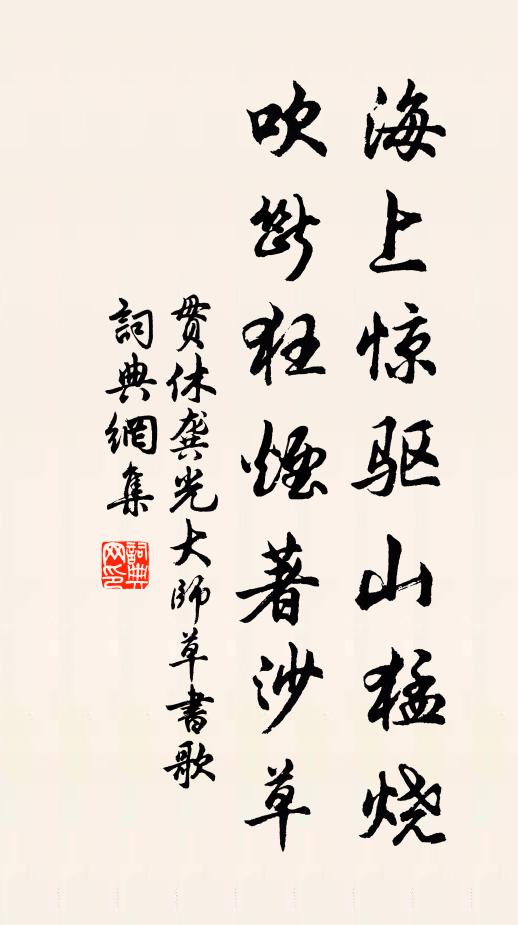 海上惊驱山猛烧
吹断狂煙著沙草
贯休龚光大师草書歌
詞典網集
詞典网印